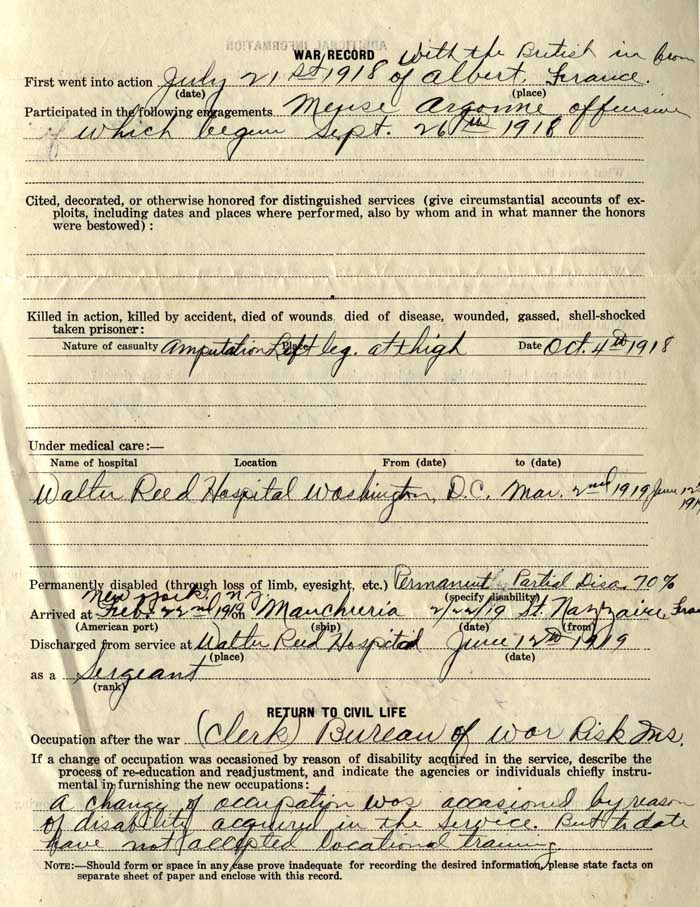 ADDITIONAL INFORMATION
WAR RECORD
With the British in
First went into action July 21st 1918 of Albert, France.
(date) (place)
Participated in the following engagements Meuse Argonne offensive
which begun Sept. 26th 1918
Cited, decorated, or otherwise honored for distinguished services (give circumstantial accounts of ex-
ploits, including dates and places where performed, also by whom and in what manner the honors
were bestowed) :
Killed in action, killed by accident, died of wounds, died of disease, wounded, gassed, shell-shocked
taken prisoner :
Nature of casualty Amputation Left leg. at thigh Place Date Oct. 4th 1918
Under medical care :—
Name of hospital Location From (date) to (date)
Walter Reed Hospital Washington, D.C. Mar. 2nd 1919 June 12
191
Permanently disabled (through loss of limb, eyesight, etc.) Permanent Partial Disa. 70%
(specify disability)
New York. N.Y.
Arrived at Feb. 22nd 1919 on Manchuria 2/22/19 St. Nazzaire Fra
(American port) (ship) (date) (from)
Discharged from service at Walter Reed Hospital June 12th 1919
(place) (date)
as a Sergeant
(rank)
RETURN TO CIVIL LIFE
Occupation after the war (Clerk) Bureau of War Risk Ins.
If a change of occupation was occasioned by reason of disability acquired in the service, describe the
process of re-education and readjustment, and indicate the agencies or individuals chiefly instru-
mental in furnishing the new occupations :
A change of occupation was accasioned by reason
of disability acquired in the service. But to date
have not accepted vocational training
NOTE :—Should form or space in any case prove inadequate for recording the desired information, please state facts on
separate sheet of paper and enclose with this record.